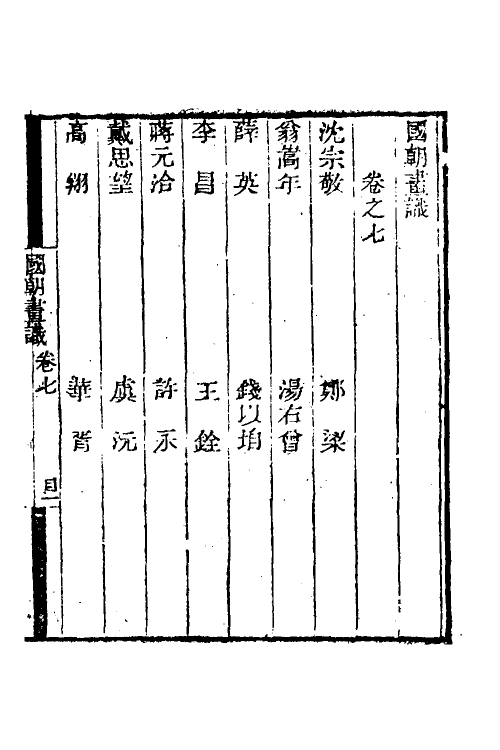 國朝畫識
卷之七
沈宗敬　鄭梁
翁嵩年　湯右曾
薛英　錢以塏
李昌　王銓
蔣元洽　許永
戴思望　虞沅
高翔　華胥
國朝畫識　卷七　目一